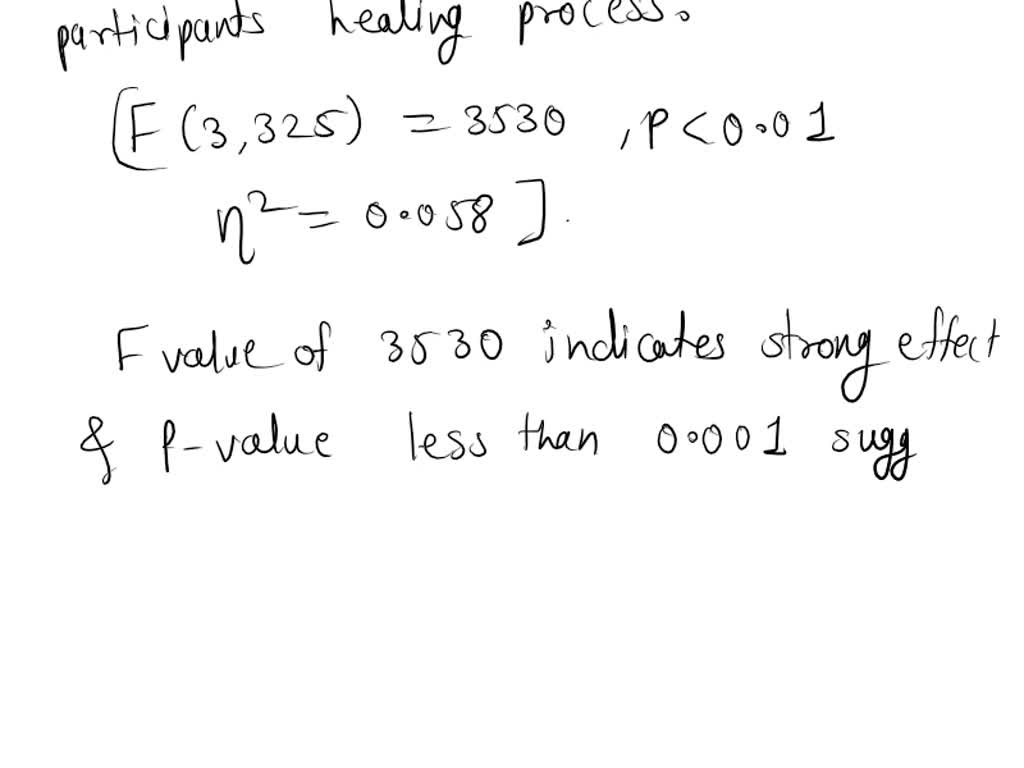 participants healing process.
[F (3,325) = 3530 , P < 0.01
η² = 0.058 ].
F value of 3530 indicates strong effect
& P-value less than 0.001 sugg